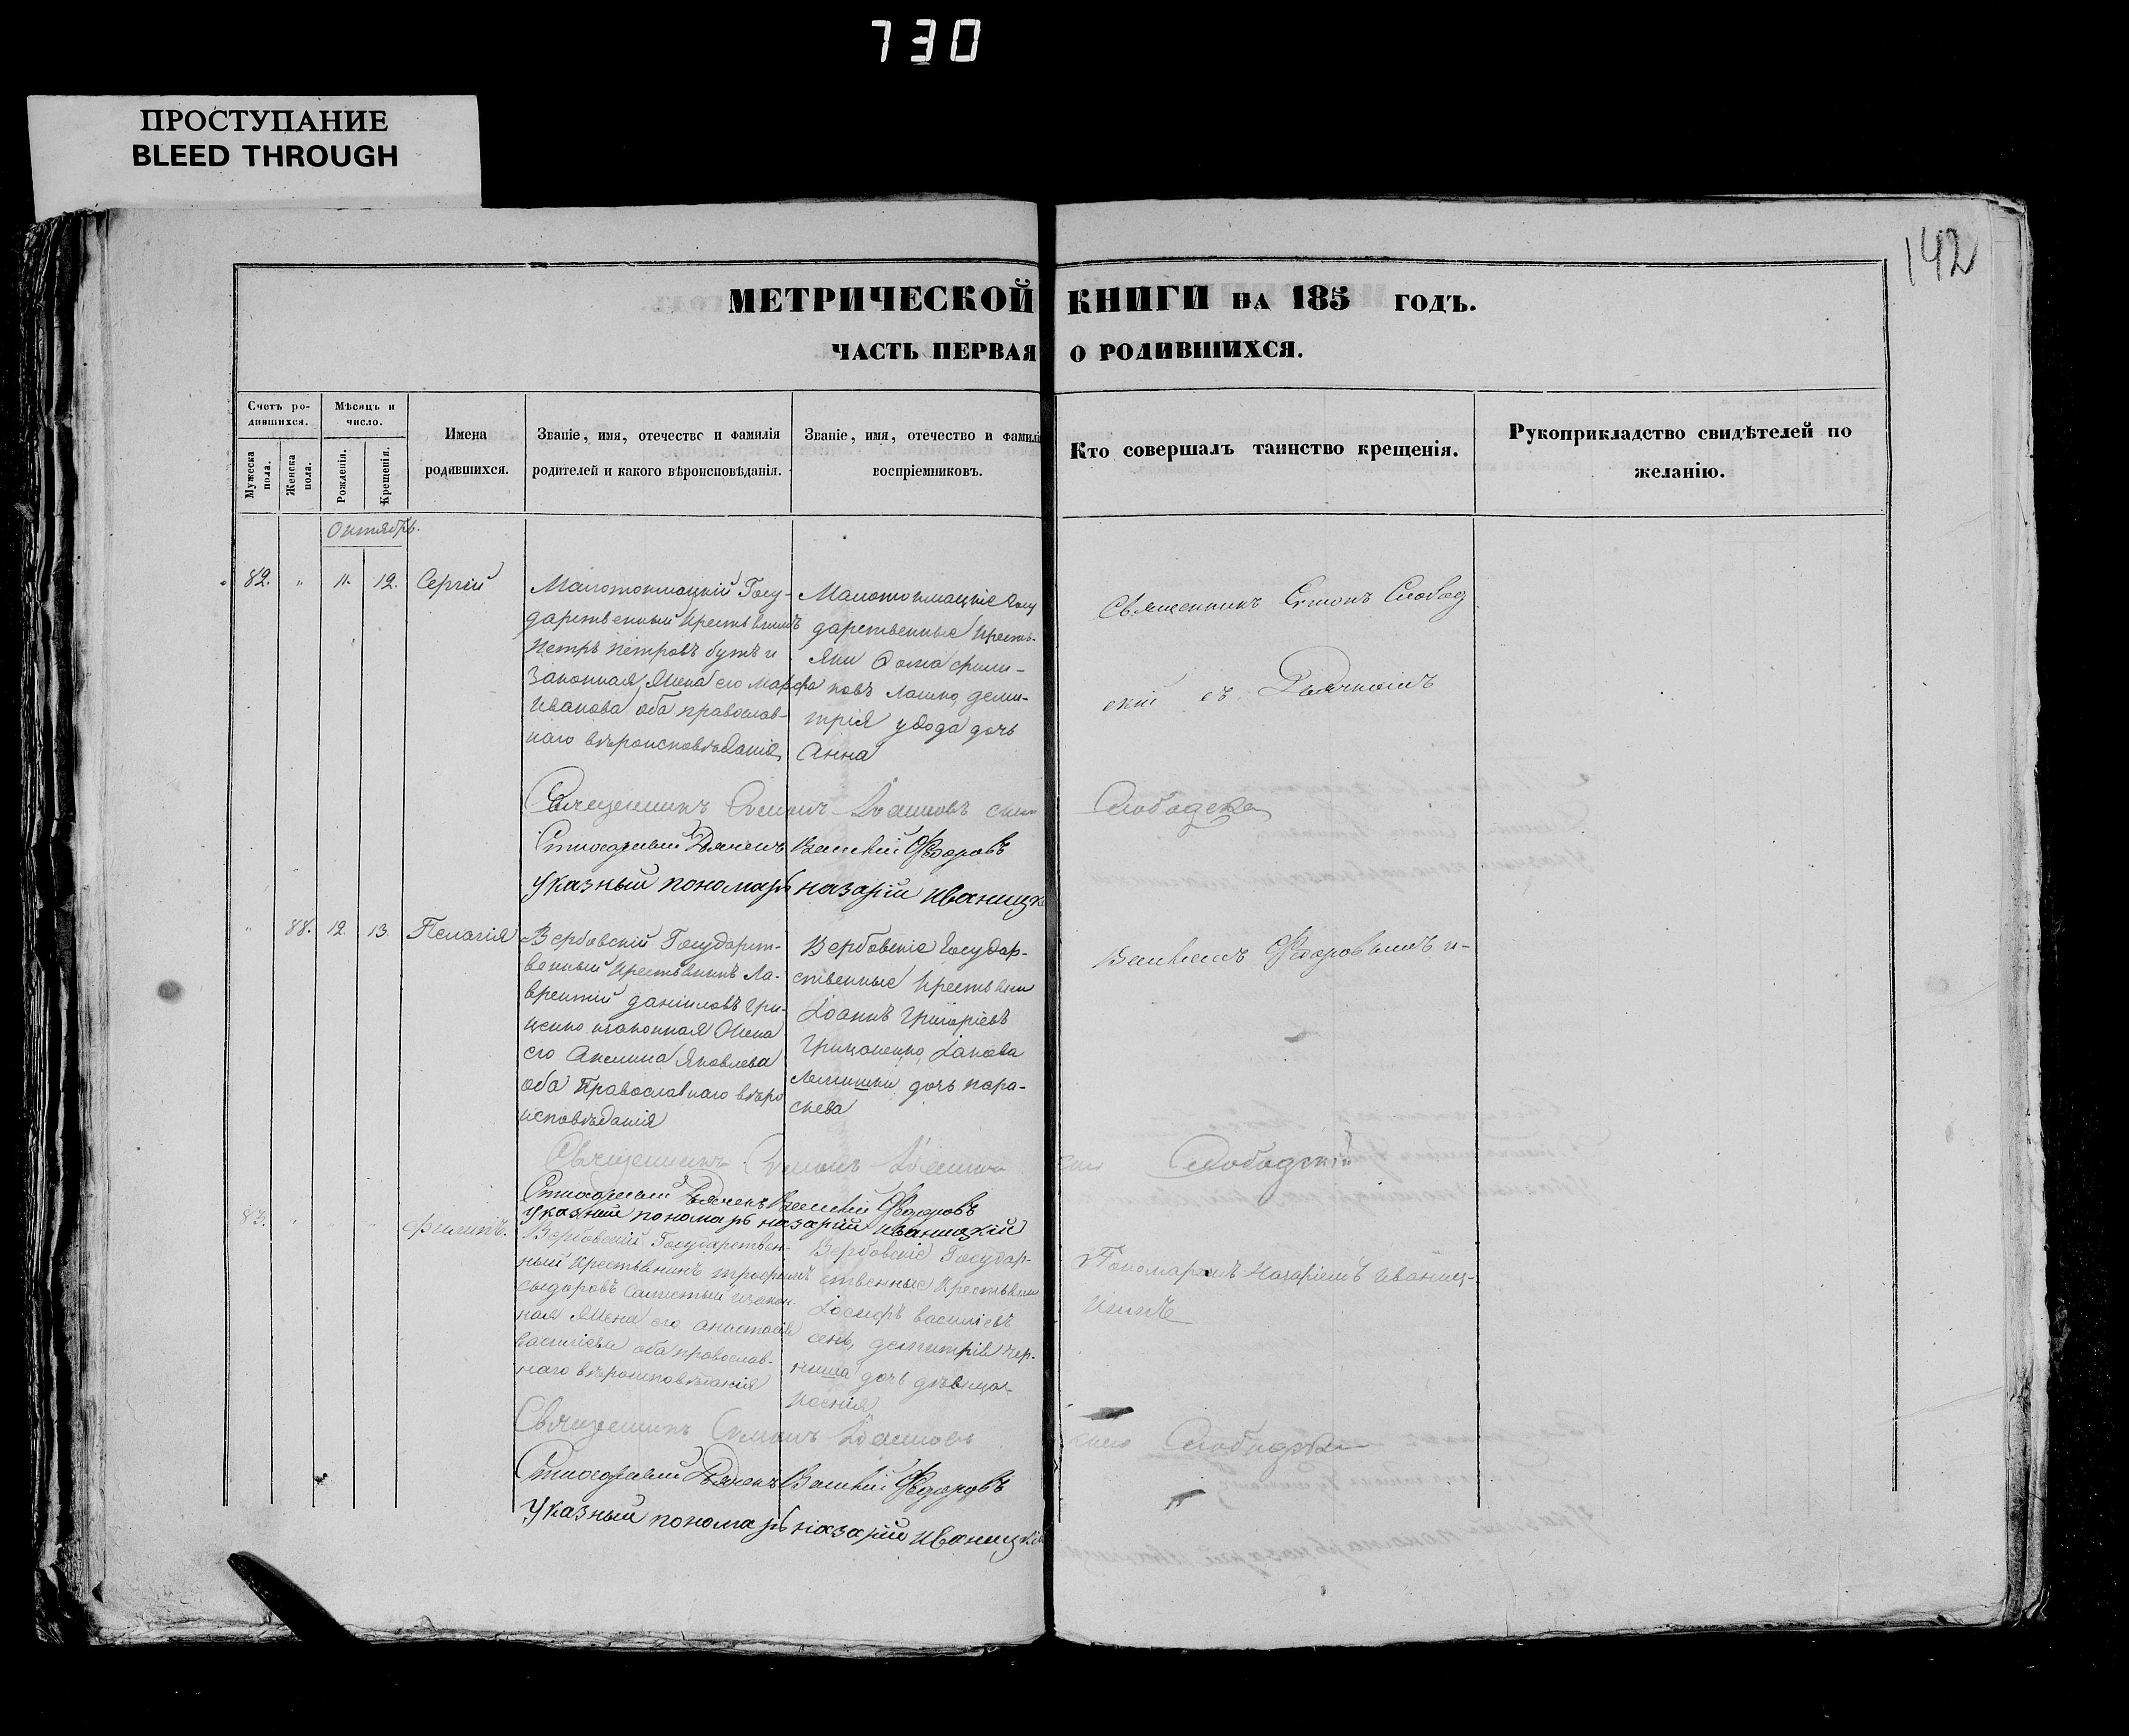 730
ПРОСТУПАНИЕ
BLEED THROUGH
142
МЕТРИЧЕСКОЙ КНИГИ НА 185 ГОДЪ.
ЧАСТЬ ПЕРВАЯ О РОДИВШИХСЯ.
Счетъ ро-
дившихся.
Мужеска пола.
Женска пола.
Мѣсяцъ и
число.
Рожденія.
Крещенія.
Имена
родившихся.
Званіе, имя, отечество и фамилія
родителей и какого вѣроисповѣданія.
Званіе, имя, отечество и фамилі
воспріемниковъ.
Кто совершалъ таинство крещенія.
Рукоприкладство свидѣтелей по
желанію.
Октябрь.
82. " 11. 12. Сергій
Малотокмацкій Госу-
дарственный крестьянинъ
Петръ Петровъ бутъ и
законная жена его Марфа
Иванова оба православ-
наго вѣроисповѣданія
Малотокмацкіе Госу
дарственные кресть-
яни Фома
дими-
трія дочь
Анна
Священникъ Симонъ Слобод
скій съ Дьячкомъ
Священникъ Симонъ Іоанновъ сынъ Слободскій
Дьячекъ Василій Федоровъ
Указный пономарь назарій иваницк
" 88. 12. 13. Пелагія
Вербовскій Государст-
венный крестьянинъ Ла-
врентій даніиловъ гри-
ценко изаконная жена
его Акилина Яковлева
оба Православнаго вѣро
исповѣданія
Вербовскіе Государ-
ственные крестьяни
Іоаннъ Григоріевъ
Іакова
дочь пара-
скева
Василіемъ Федоровымъ и-
Священникъ Симонъ Іоанновъ сынъ Слободскій
Дьячекъ Василій Федоровъ
Указный пономарь назарій иваницкій
83. " " " Филипъ.
Вербовскій Государствен-
ный крестьянинъ трофимъ
сыдоровъ изакон-
ная жена его анастасія
василіева оба православ-
наго вѣроисповѣданія
Вербовскіе Государ-
ственные крестьяни
Іосифъ василіевъ
сень, димитрія чер-
ниша дочь дѣвица-
Ксенія
Пономаремъ Назаріемъ Иваниц-
кимъ
Священникъ Симонъ Іоанновъ сынъ Слободскій
Дьячекъ Василій Федоровъ
Указный пономарь назарій иваницкій